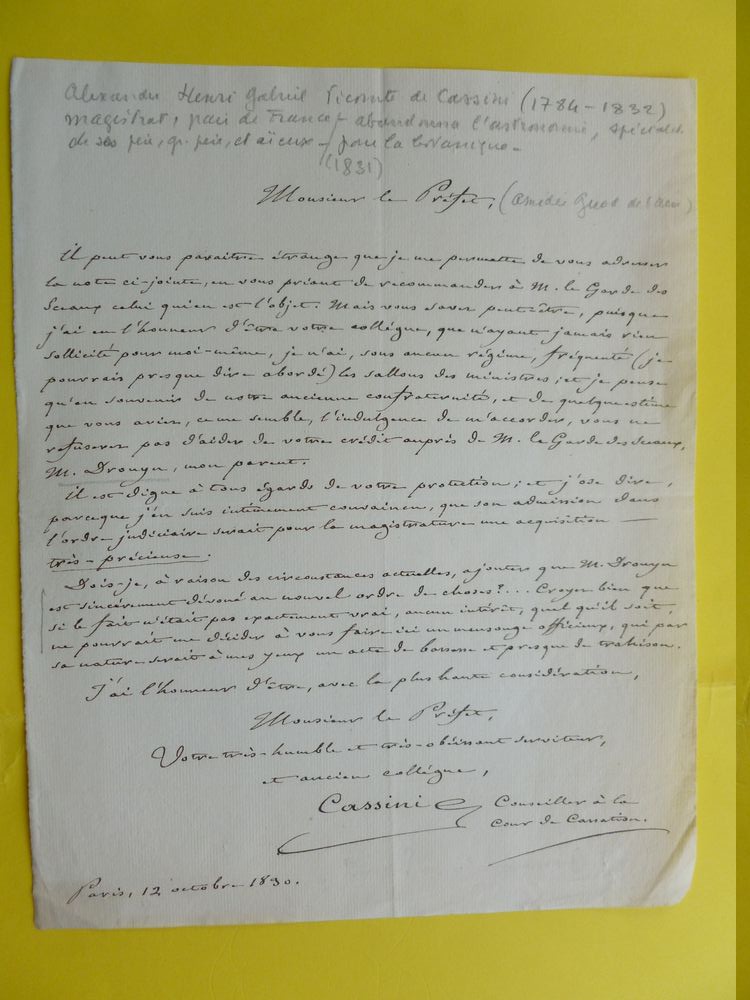 Alexandre Henri Gabriel Vicomte de Cassini (1784-1832)
magistrat, pair de France / abandonna l'astronomie, spécialité
de ses père, gr. père, et aïeux - / pour la botanique -
(1831)
Monsieur le Préfet, (Amédée Girod de l'Ain)
Il peut vous paraître étrange que je me permette de vous adresser
la note ci-jointe, en vous priant de recommander à M. le Garde des
Sceaux celui qui en est l'objet. Mais vous savez peut-être, puisque
j'ai eu l'honneur d'être votre collégue, que n'ayant jamais rien
sollicité pour moi-même, je n'ai, sous aucun régime, fréquenté (je
pourrais presque dire abordé) les sallons des ministres; et je pense
qu'en souvenir de notre ancienne confraternité, et de quelque estime
que vous aviez, ce me semble, l'indulgence de m'accorder, vous ne
refuserez pas d'aider de votre crédit auprès de M. le Garde des Sceaux,
M. Drouyn, mon parent.
Il est digne à tous égards de votre protection; et j'ose dire,
parceque j'en suis intimement convaincu, que son admission dans
l'ordre judiciaire serait pour la magistrature une acquisition —
très-précieuse.
Dois-je, à raison des circonstances actuelles, ajouter que M. Drouyn
est sincèrement dévoué au nouvel ordre de choses?... Croyez bien que
si le fait n'était pas exactement vrai, aucun intérêt, quel qu'il soit,
ne pourrait me décider à vous faire ici un mensonge officieux, qui par
sa nature serait à mes yeux un acte de bassesse et presque de trahison.
J'ai l'honneur d'être, avec la plus haute considération,
Monsieur le Préfet,
Votre très-humble et très-obéissant serviteur,
et ancien collégue,
Cassini Conseiller à la
Cour de Cassation.
Paris, 12 octobre 1830.